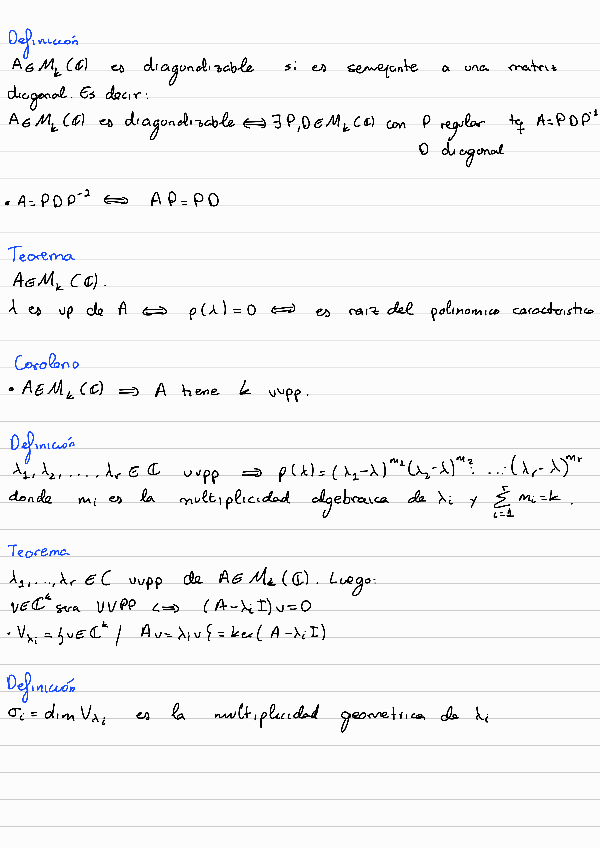 Definición
A∈M_k(ℂ) es diagonalizable si es semejante a una matriz
diagonal. Es decir:
A∈M_k(ℂ) es diagonalizable ⟺ ∃P,D∈M_k(ℂ) con P regular tq A=PDP⁻¹
D diagonal
• A=PDP⁻¹ ⟺ AP=PD
Teorema
A∈M_k(ℂ).
λ es vp de A ⟺ p(λ)=0 ⟺ es raiz del polinomico caracteristico
Corolario
• A∈M_k(ℂ) ⟹ A tiene k vvpp.
Definición
λ₁,λ₂,...,λr ∈ ℂ vvpp ⟹ p(λ)=(λ₁-λ)^m₁(λ₂-λ)^m₂...(λr-λ)^mr
donde mi es la multiplicidad algebraica de λi y ∑_{i=1}^{r} mi=k.
Teorema
λ₁,...,λr ∈ ℂ vvpp de A∈M_k(ℂ). Luego:
v∈ℂ^k sea VVPP ⟺ (A-λiI)v=0
• V_λi={v∈ℂ^k / Av=λiv}=ker(A-λiI)
Definición
σi=dim V_λi es la multiplicidad geometrica de λi